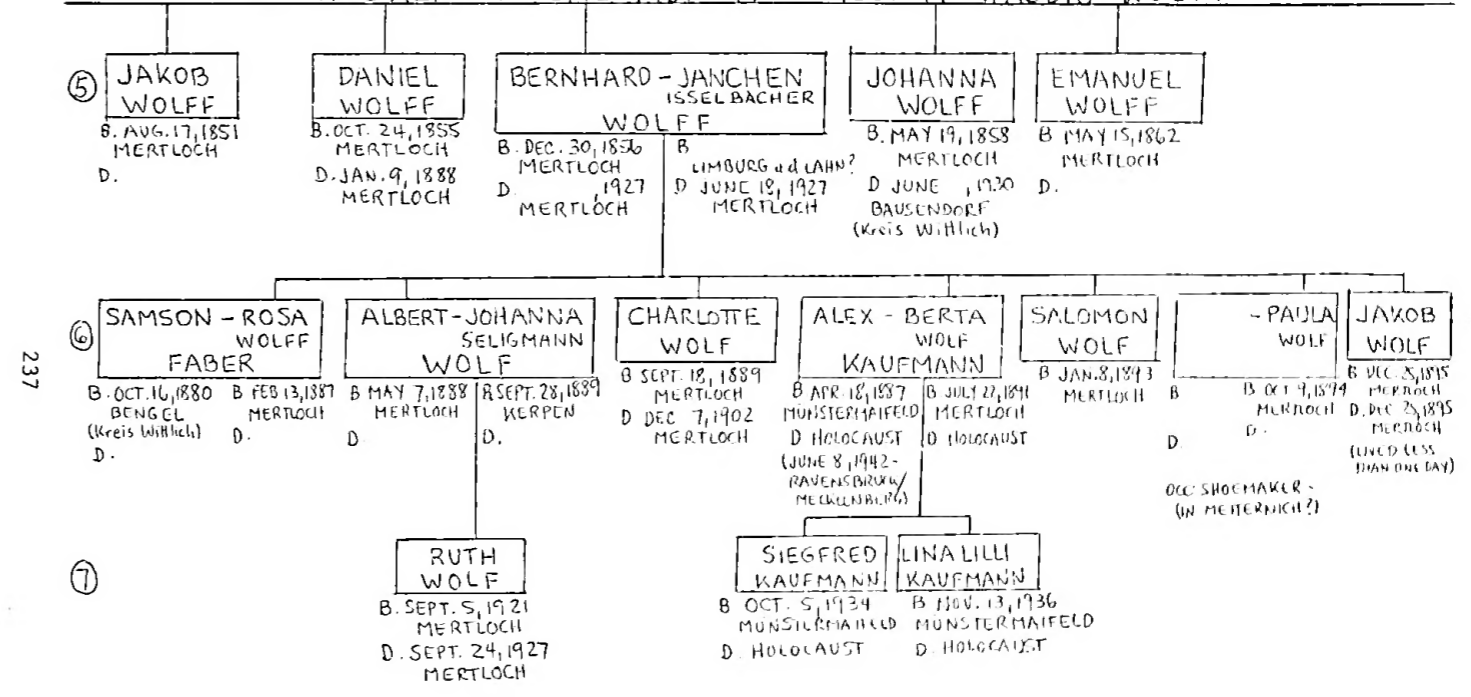 ⑤
JAKOB
WOLFF
B. AUG. 17, 1851
MERTLOCH
D.
DANIEL
WOLFF
B. OCT. 24, 1855
MERTLOCH
D. JAN. 9, 1888
MERTLOCH
BERNHARD - JANCHEN
ISSELBACHER
WOLFF
B. DEC. 30, 1856
MERTLOCH
D. , 1927
MERTLOCH
B
LIMBURG a d LAHN?
D JUNE 18, 1927
MERTLOCH
JOHANNA
WOLFF
B. MAY 19, 1858
MERTLOCH
D JUNE , 1930
BAUSENDORF
(Kreis Wittlich)
EMANUEL
WOLFF
B MAY 15, 1862
MERTLOCH
D.
⑥
SAMSON - ROSA
WOLFF
FABER
B. OCT. 16, 1880
BENGEL
(Kreis Wittlich)
D.
B FEB 13, 1887
MERTLOCH
D.
ALBERT - JOHANNA
SELIGMANN
WOLF
B MAY 7, 1888
MERTLOCH
D.
B SEPT. 28, 1889
KERPEN
D.
CHARLOTTE
WOLF
B SEPT. 18, 1889
MERTLOCH
D DEC 7, 1902
MERTLOCH
ALEX - BERTA
WOLF
KAUFMANN
B APR. 18, 1887
MÜNSTERMAIFELD
D HOLOCAUST
(JUNE 8, 1942 -
RAVENSBRUCK/
MECKLENBURG)
B JULY 22,
MERTLOCH
D HOLOCAUST
SALOMON
WOLF
B JAN. 8, 1893
MERTLOCH
- PAULA
WOLF
B
D.
B OCT 9, 1894
MERTLOCH
D.
OCC SHOEMAKER -
(IN METTERNICH?)
JAKOB
WOLF
B DEC. 25, 1895
MERTLOCH
D. DEC 25, 1895
MERTLOCH
(LIVED LESS
THAN ONE DAY)
237
⑦
RUTH
WOLF
B. SEPT. 5, 1921
MERTLOCH
D. SEPT. 24, 1927
MERTLOCH
SIEGFRED
KAUFMANN
B OCT. 5, 1934
MÜNSTERMAIFELD
D. HOLOCAUST
LINA LILLI
KAUFMANN
B NOV. 13, 1936
MÜNSTERMAIFELD
D. HOLOCAUST